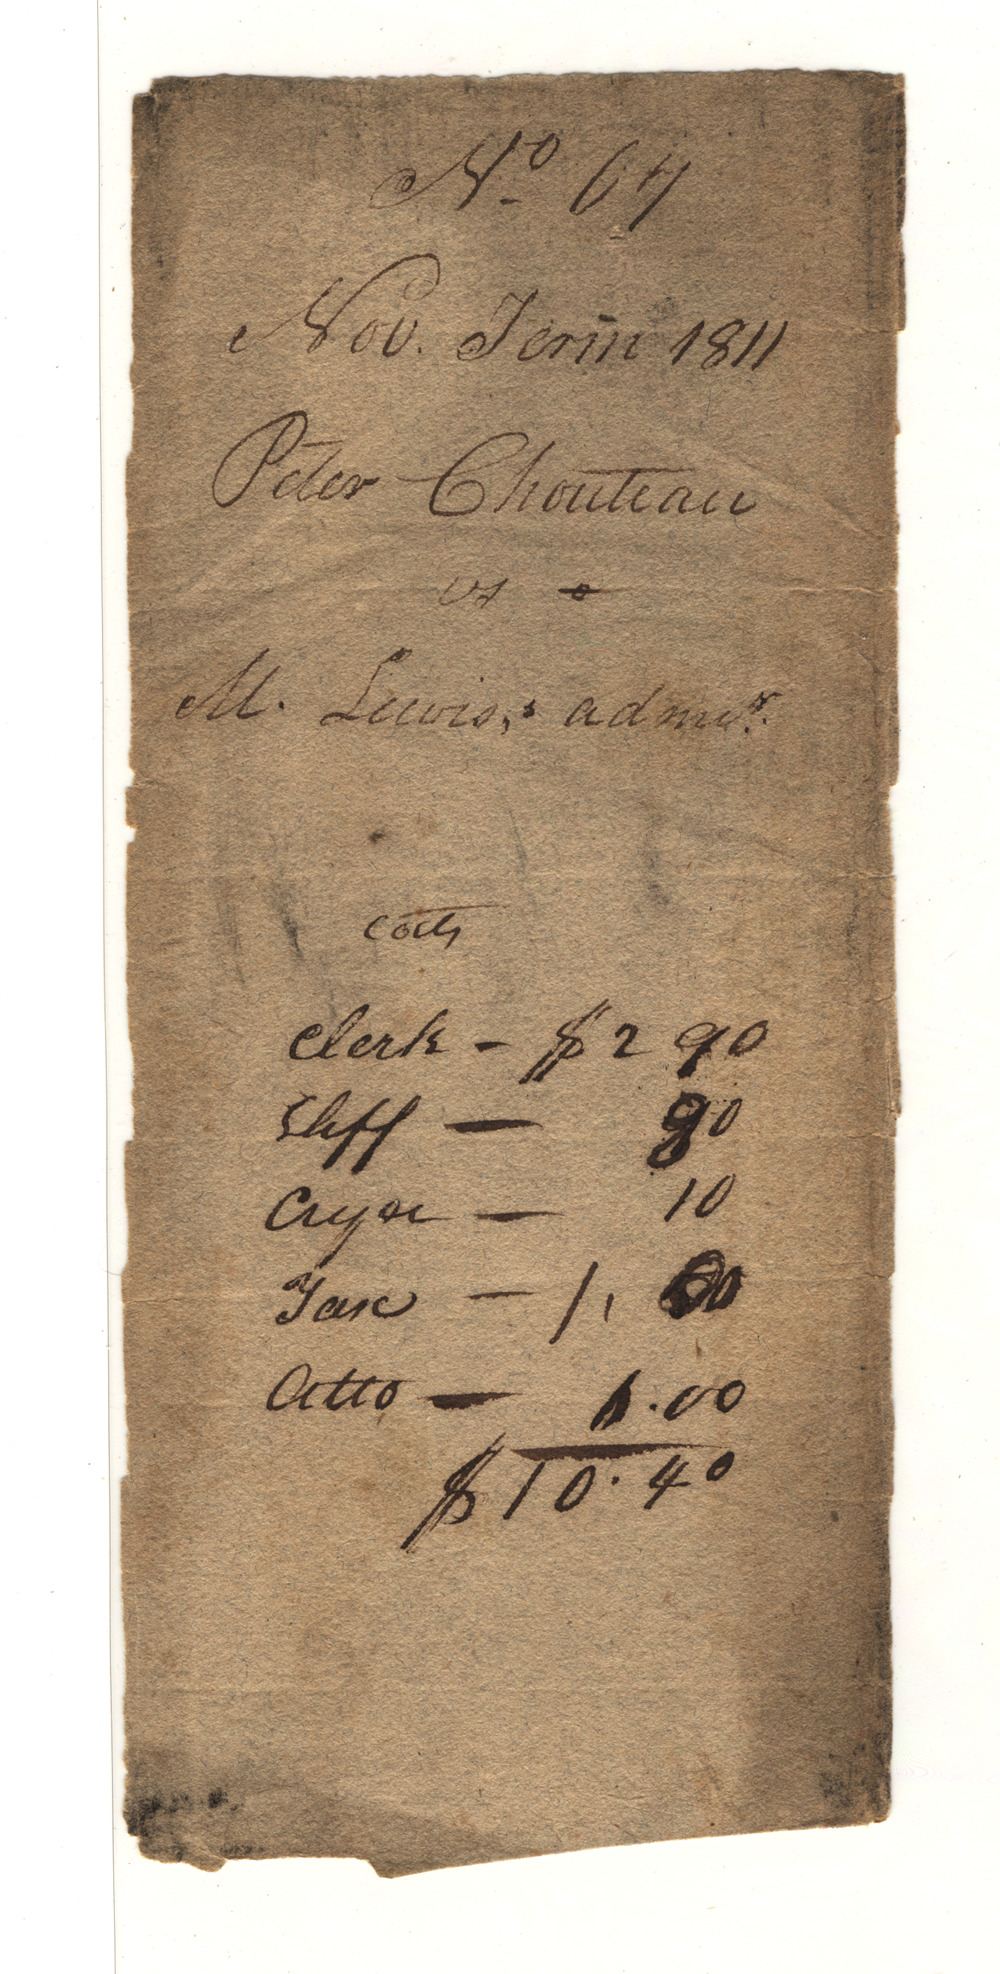 No 64
Nov. Term 1811
Peter Chouteau
vs
M. Lewis,s admr.
Costs
Clerk - $2 90
Shff — 90
Cryer — 10
Tax — 1,
Atto — 5.00
$10.40